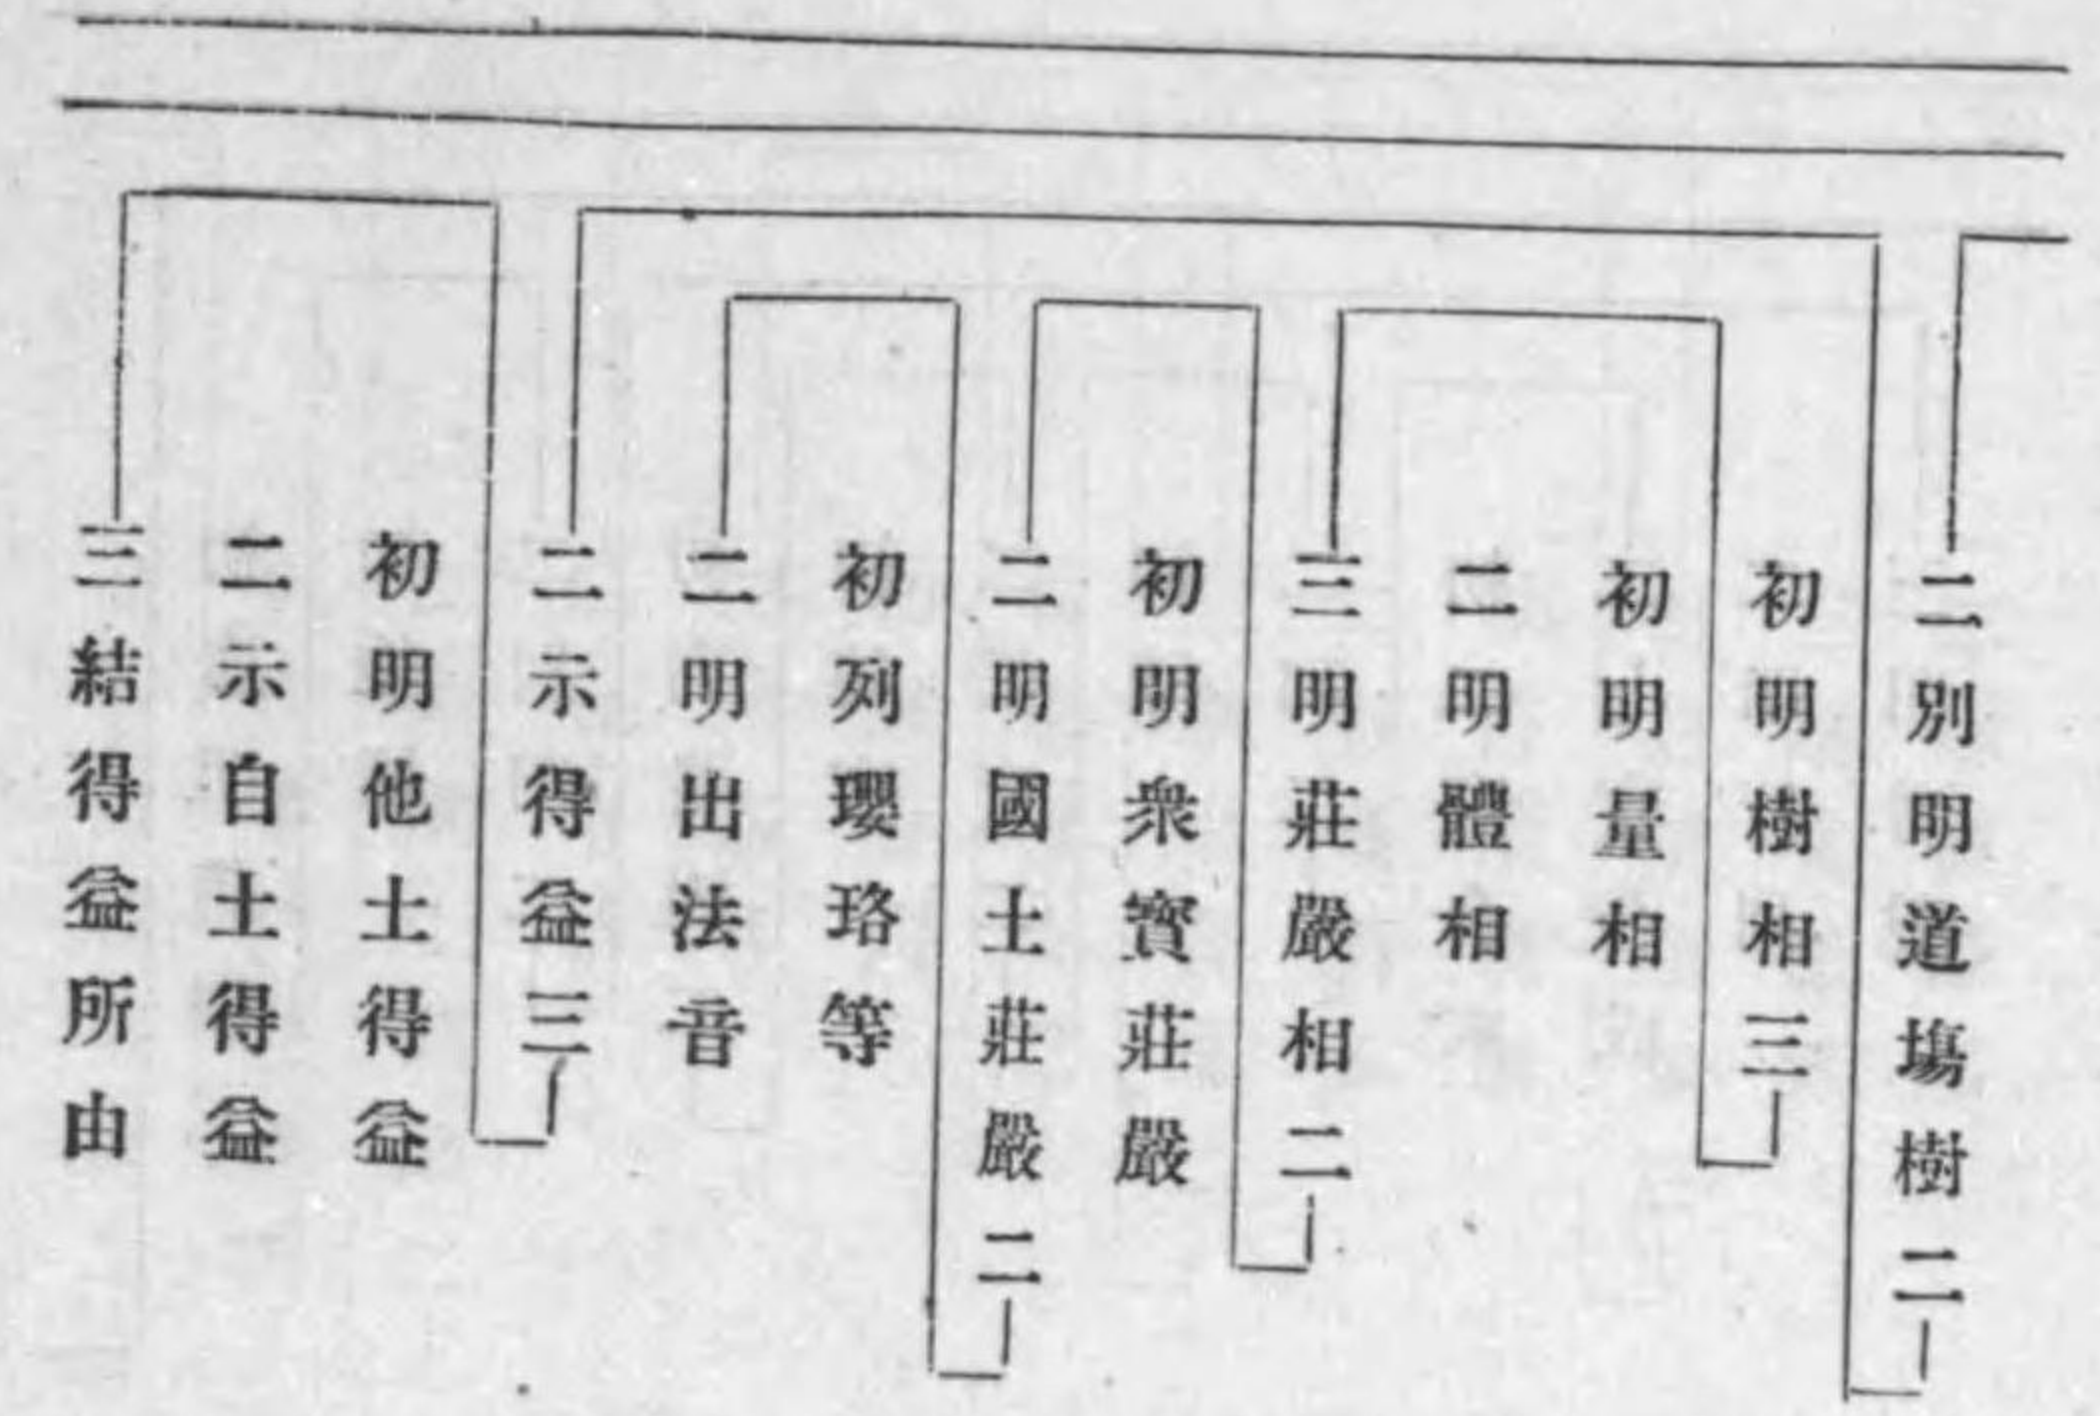 二別明道塲樹二
初明樹相三
初明量相
二明體相
三明莊嚴相二
初明衆寶莊嚴
二明國土莊嚴二
初列瓔珞等
二明出法音
二示得益三
初明他土得益
二示自土得益
三結得益所由